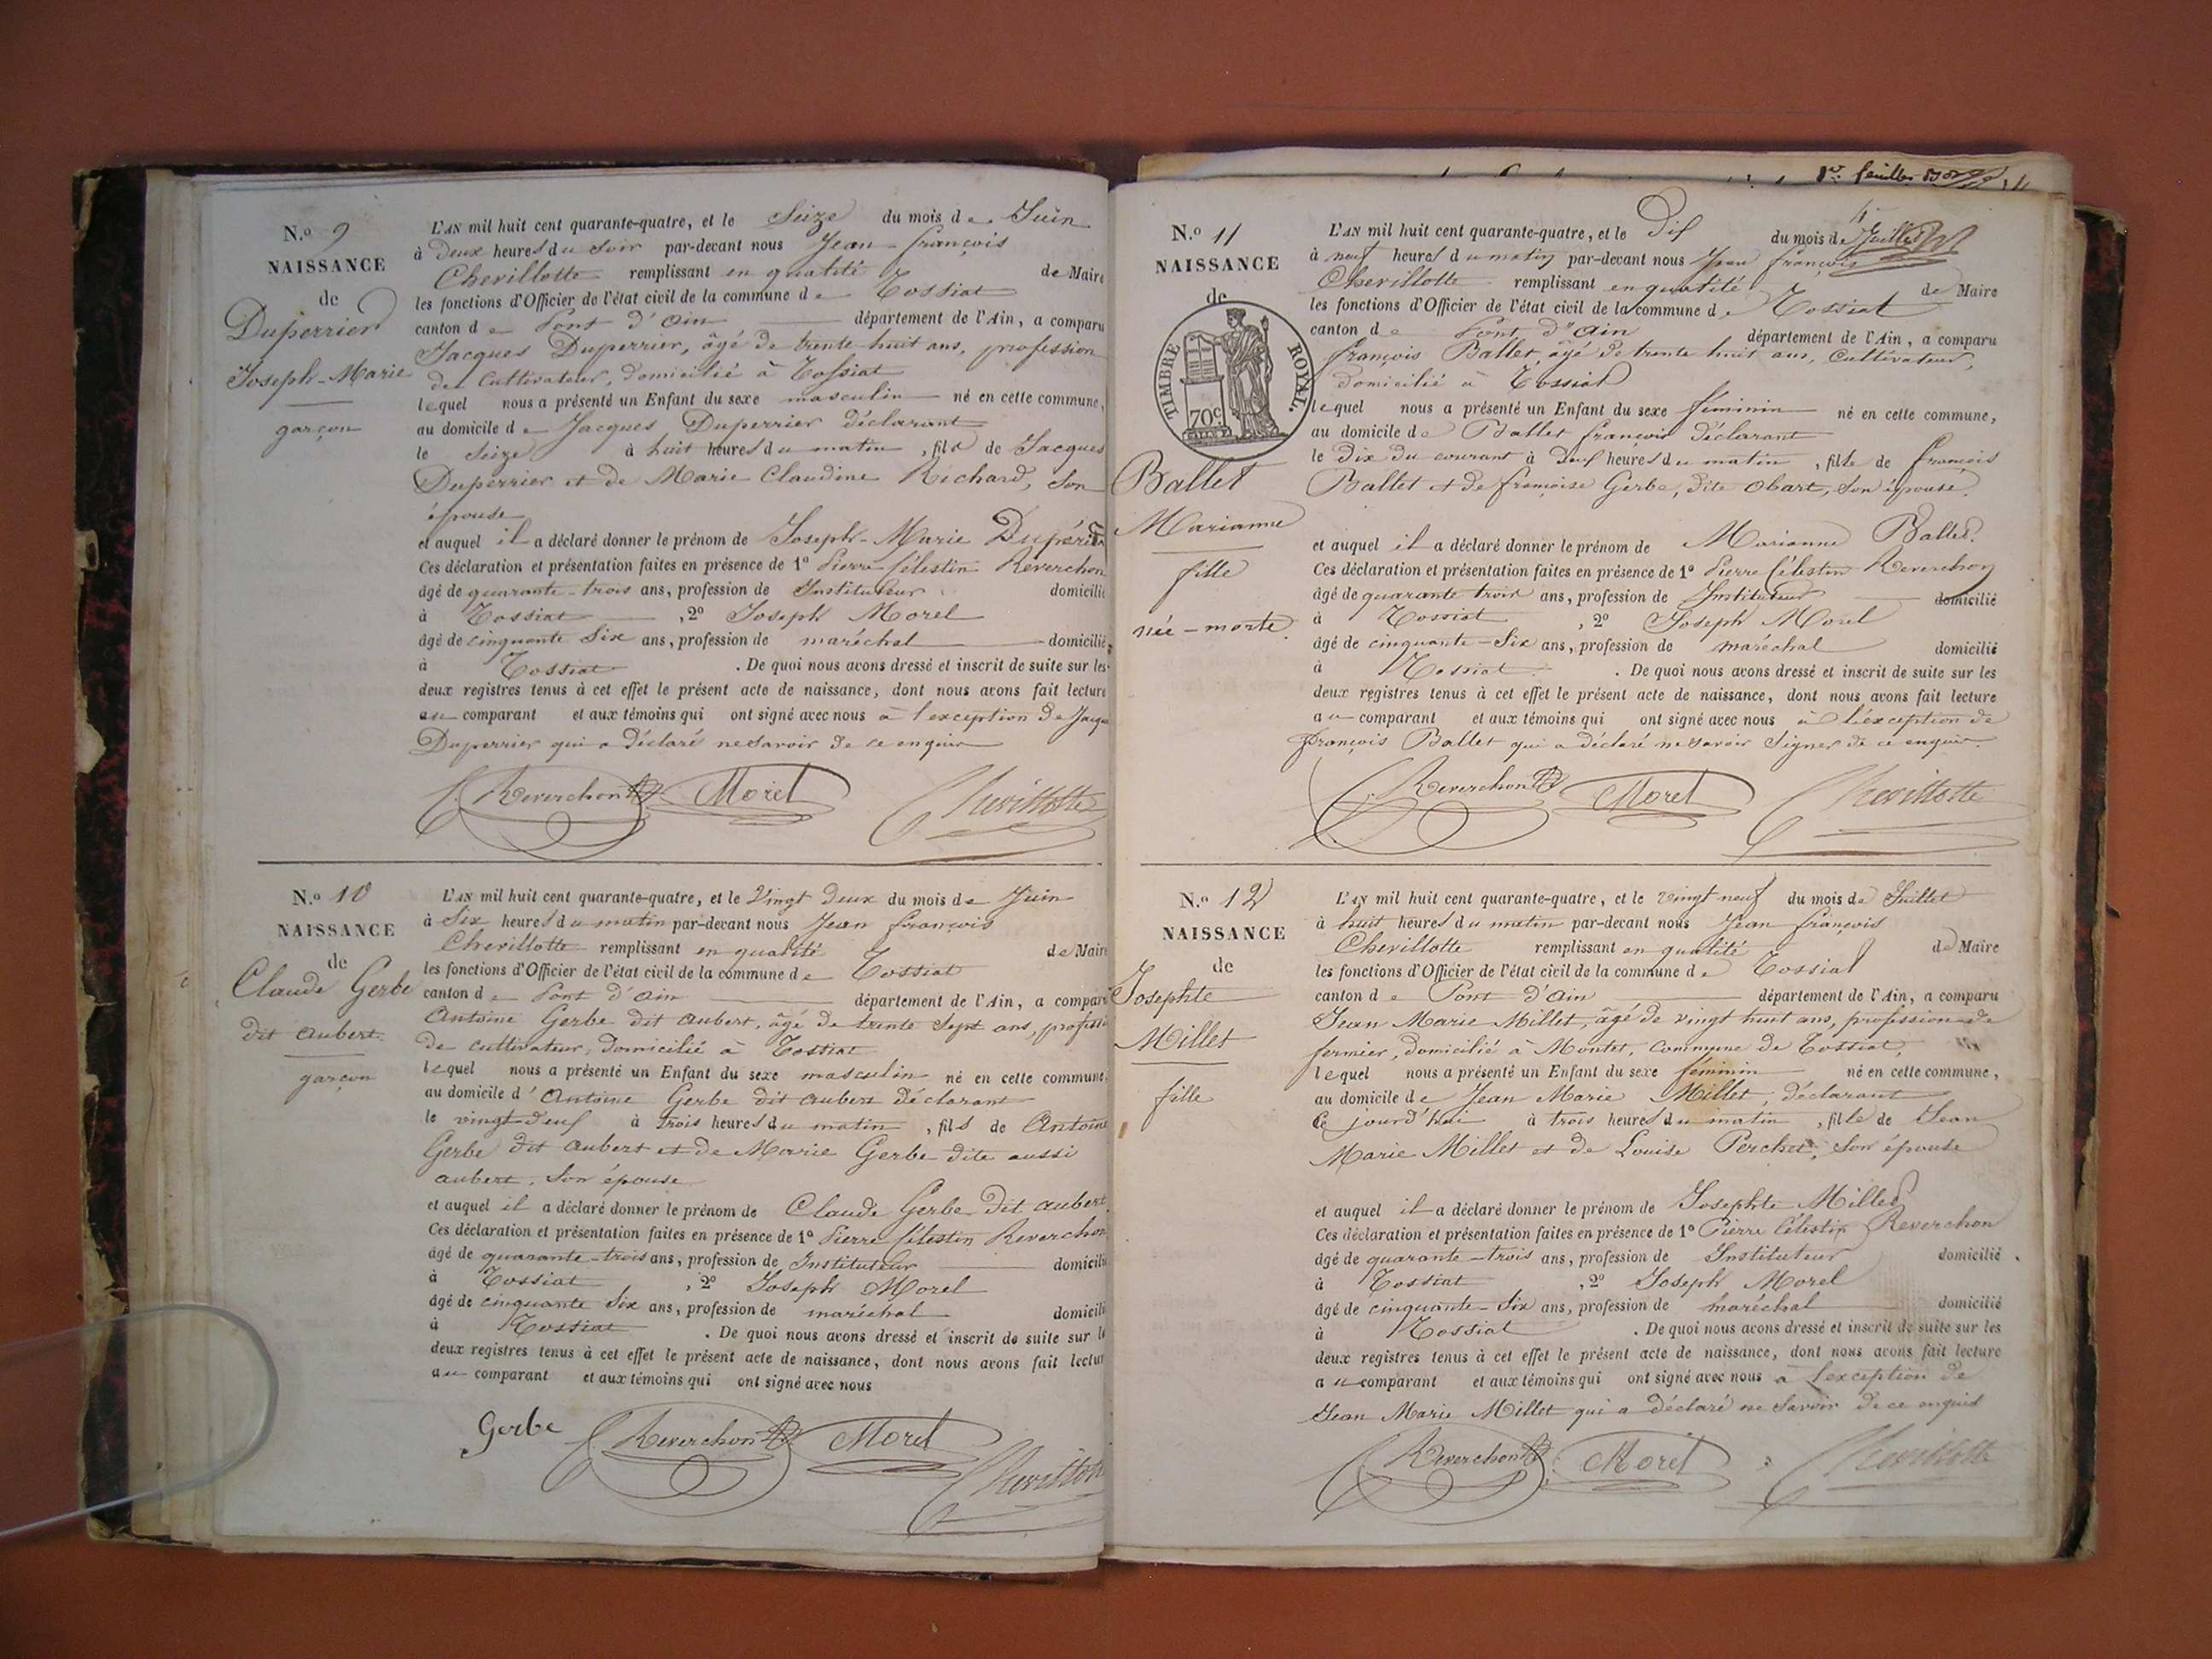 N.o 9
NAISSANCE
de
Duperrier
Joseph-Marie
garçon
L'AN mil huit cent quarante-quatre, et le Seize du mois de Juin
à Deux heures du soir par-devant nous Jean-françois
Chevillotte remplissant en qualité de Maire
les fonctions d'Officier de l'état civil de la commune de Tossiat
canton de Pont d'ain département de l'Ain, a comparu
Jacques Duperrier, âgé de trente-huit ans, profession
de Cultivateur, domicilié à Tossiat
lequel nous a présenté un Enfant du sexe masculin né en cette commune,
au domicile de Jacques Duperrier déclarant
le Seize à huit heures du matin, fils de Jacques
Duperrier et de Marie Claudine Richard, son
épouse
et auquel il a déclaré donner le prénom de Joseph-Marie Dupérier
Ces déclaration et présentation faites en présence de 1º Pierre Célestin Reverchon
âgé de quarante-trois ans, profession de Instituteur domicilié
à Tossiat, 2º Joseph Morel
âgé de cinquante Six ans, profession de maréchal domicilié
à Tossiat. De quoi nous avons dressé et inscrit de suite sur les
deux registres tenus à cet effet le présent acte de naissance, dont nous avons fait lecture
au comparant et aux témoins qui ont signé avec nous à l'exception de Jacques
Duperrier qui a déclaré ne savoir de ce enquis
Reverchon Morel Chevillotte
N.o 10
NAISSANCE
de
Claude Gerbe
dit aubert.
garçon
L'AN mil huit cent quarante-quatre, et le Vingt Deux du mois de Juin
à Six heures du matin par-devant nous Jean françois
Chevillotte remplissant en qualité de Maire
les fonctions d'Officier de l'état civil de la commune de Tossiat
canton de Pont d'ain département de l'Ain, a comparu
Antoine Gerbe dit aubert, âgé de trente Sept ans, profession
de cultivateur, domicilié à Tossiat
lequel nous a présenté un Enfant du sexe masculin né en cette commune,
au domicile d'Antoine Gerbe dit aubert déclarant
le vingt-deux à trois heures du matin, fils de Antoine
Gerbe dit aubert et de Marie Gerbe dite aussi
aubert, son épouse
et auquel il a déclaré donner le prénom de Claude Gerbe dit aubert.
Ces déclaration et présentation faites en présence de 1º Pierre Célestin Reverchon
âgé de quarante-trois ans, profession de Instituteur domicilié
à Tossiat, 2º Joseph Morel
âgé de cinquante Six ans, profession de maréchal domicilié
à Tossiat. De quoi nous avons dressé et inscrit de suite sur les
deux registres tenus à cet effet le présent acte de naissance, dont nous avons fait lecture
au comparant et aux témoins qui ont signé avec nous
Gerbe Reverchon Morel
Chevillotte
N.o 11
NAISSANCE
de
TIMBRE ROYAL.
70c
Ballet
Marianne
fille
née-morte.
L'AN mil huit cent quarante-quatre, et le Dix du mois de Juillet
à neuf heures du matin par-devant nous Jean françois
Chevillotte remplissant en qualité de Maire
les fonctions d'Officier de l'état civil de la commune de Tossiat
canton de Pont d'ain département de l'Ain, a comparu
françois Ballet, âgé de trente huit ans, Cultivateur,
domicilié à Tossiat
lequel nous a présenté un Enfant du sexe féminin né en cette commune,
au domicile de Ballet françois déclarant
le Dix du courant à Deux heures du matin, fille de françois
Ballet et de françoise Gerbe, dite obart, son épouse.
et auquel il a déclaré donner le prénom de Marianne Ballet.
Ces déclaration et présentation faites en présence de 1º Pierre Célestin Reverchon
âgé de quarante trois ans, profession de Instituteur domicilié
à Tossiat, 2º Joseph Morel
âgé de cinquante-Six ans, profession de maréchal domicilié
à Tossiat. De quoi nous avons dressé et inscrit de suite sur les
deux registres tenus à cet effet le présent acte de naissance, dont nous avons fait lecture
au comparant et aux témoins qui ont signé avec nous à l'exception de
françois Ballet qui a déclaré ne savoir Signer de ce enquis.
Reverchon Morel Chevillotte
N.o 12
NAISSANCE
de
Josephte
Millet
fille
L'AN mil huit cent quarante-quatre, et le vingt neuf du mois de Juillet
à huit heures du matin par-devant nous Jean françois
Chevillotte remplissant en qualité de Maire
les fonctions d'Officier de l'état civil de la commune de Tossiat
canton de Pont d'ain département de l'Ain, a comparu
Jean Marie Millet, âgé de vingt huit ans, profession de
fermier, domicilié à Montet, commune de Tossiat,
lequel nous a présenté un Enfant du sexe féminin né en cette commune,
au domicile de Jean Marie Millet, déclarant
Ce jourd'hui à trois heures du matin, fille de Jean
Marie Millet et de Louise Perchet, Son épouse
et auquel il a déclaré donner le prénom de Josephte Millet
Ces déclaration et présentation faites en présence de 1º Pierre Célestin Reverchon
âgé de quarante-trois ans, profession de Instituteur domicilié
à Tossiat, 2º Joseph Morel
âgé de cinquante-Six ans, profession de maréchal domicilié
à Tossiat. De quoi nous avons dressé et inscrit de suite sur les
deux registres tenus à cet effet le présent acte de naissance, dont nous avons fait lecture
au comparant et aux témoins qui ont signé avec nous à l'exception de
Jean Marie Millet qui a déclaré ne savoir de ce enquis
Reverchon Morel Chevillotte